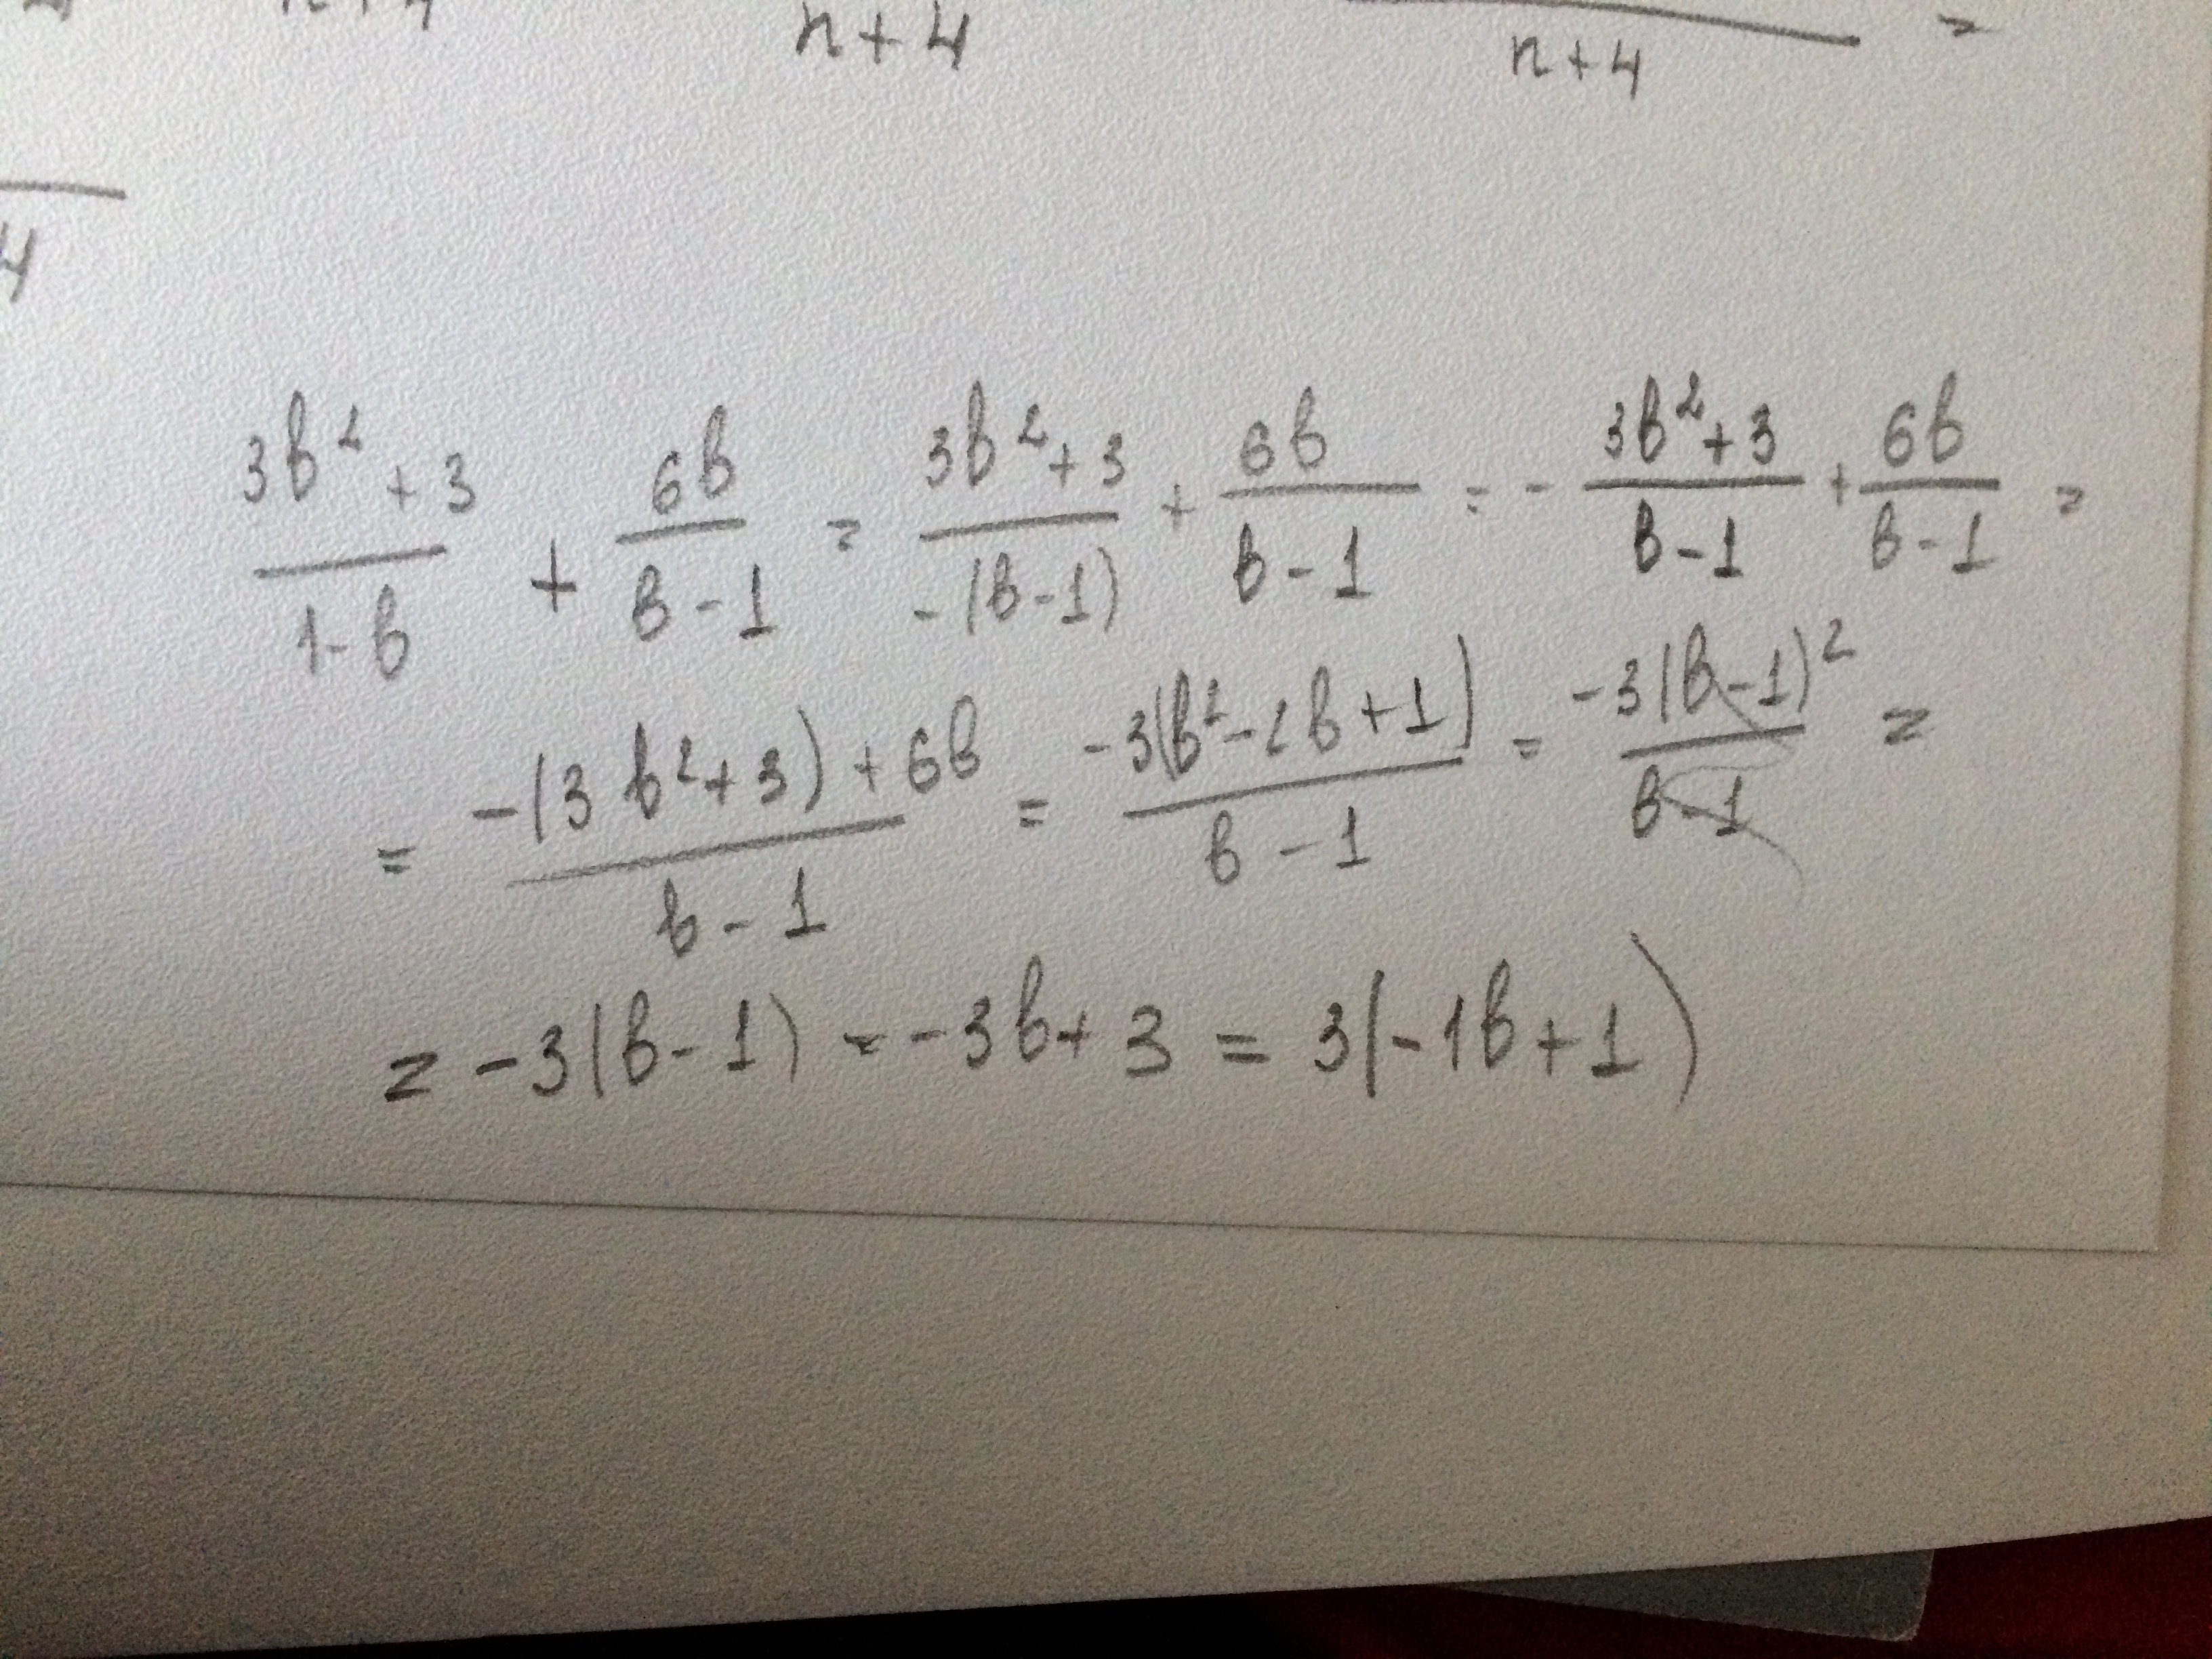 n+4 n+4 =
4
3b² + 3 / 1-b + 6b / b-1 = 3b²+3 / -(b-1) + 6b / b-1 = - 3b²+3 / b-1 + 6b / b-1 =
= -(3b²+3)+6b / b-1 = -3(b²-2b+1) / b-1 = -3(b-1)² / b-1 =
= -3(b-1) = -3b+3 = 3(-1b+1)